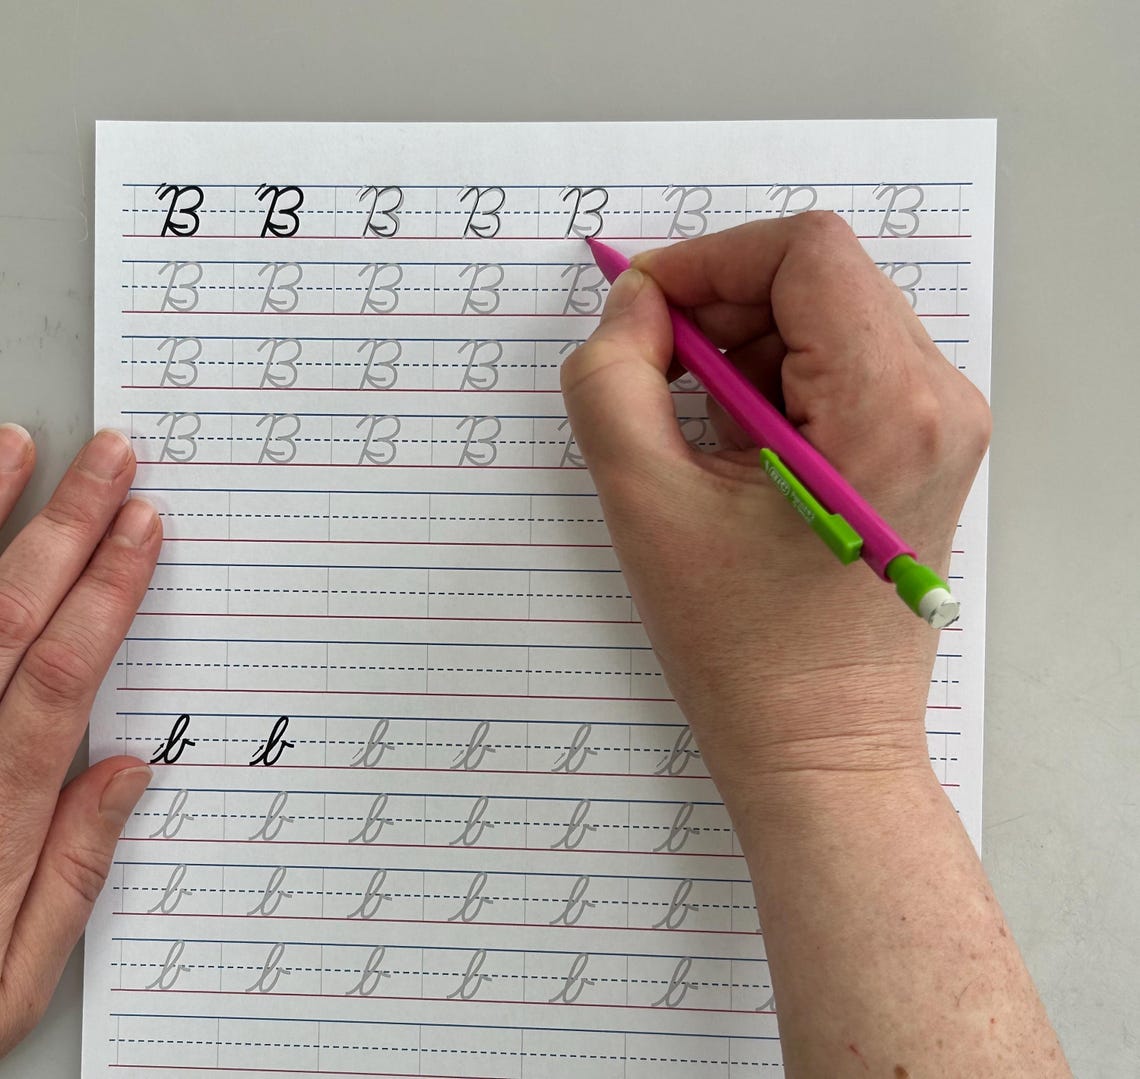 B B B B B B B B
B B B B B B
B B B B
B B B B B B
b b b b b b
b b b b b b
b b b b b b
b b b b b b